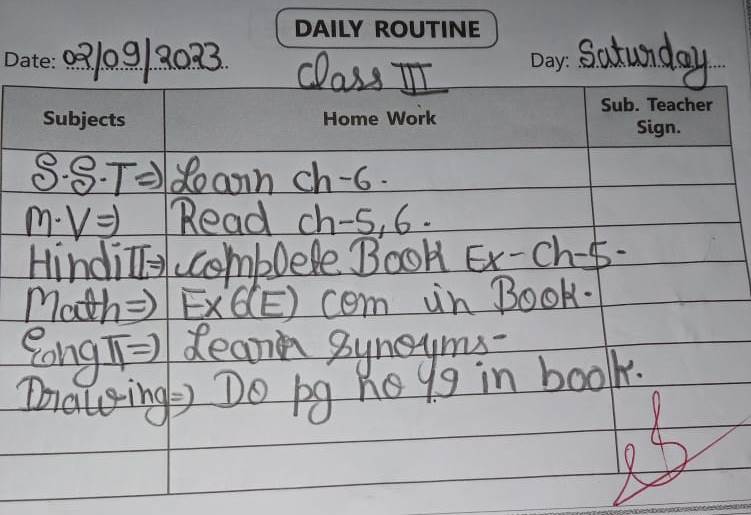 DAILY ROUTINE
Date: 02/09/2023 Day: Saturday
Class III
Subjects Home Work Sub. Teacher Sign.
S.S.T⇒ Learn ch-6.
M.V⇒ Read ch-5,6.
Hindi II⇒ complete Book Ex-Ch-5-
Math⇒ Ex 6(E) com in Book.
Eng II⇒ Learn Synoyms-
Drawing⇒ Do pg no 49 in book.